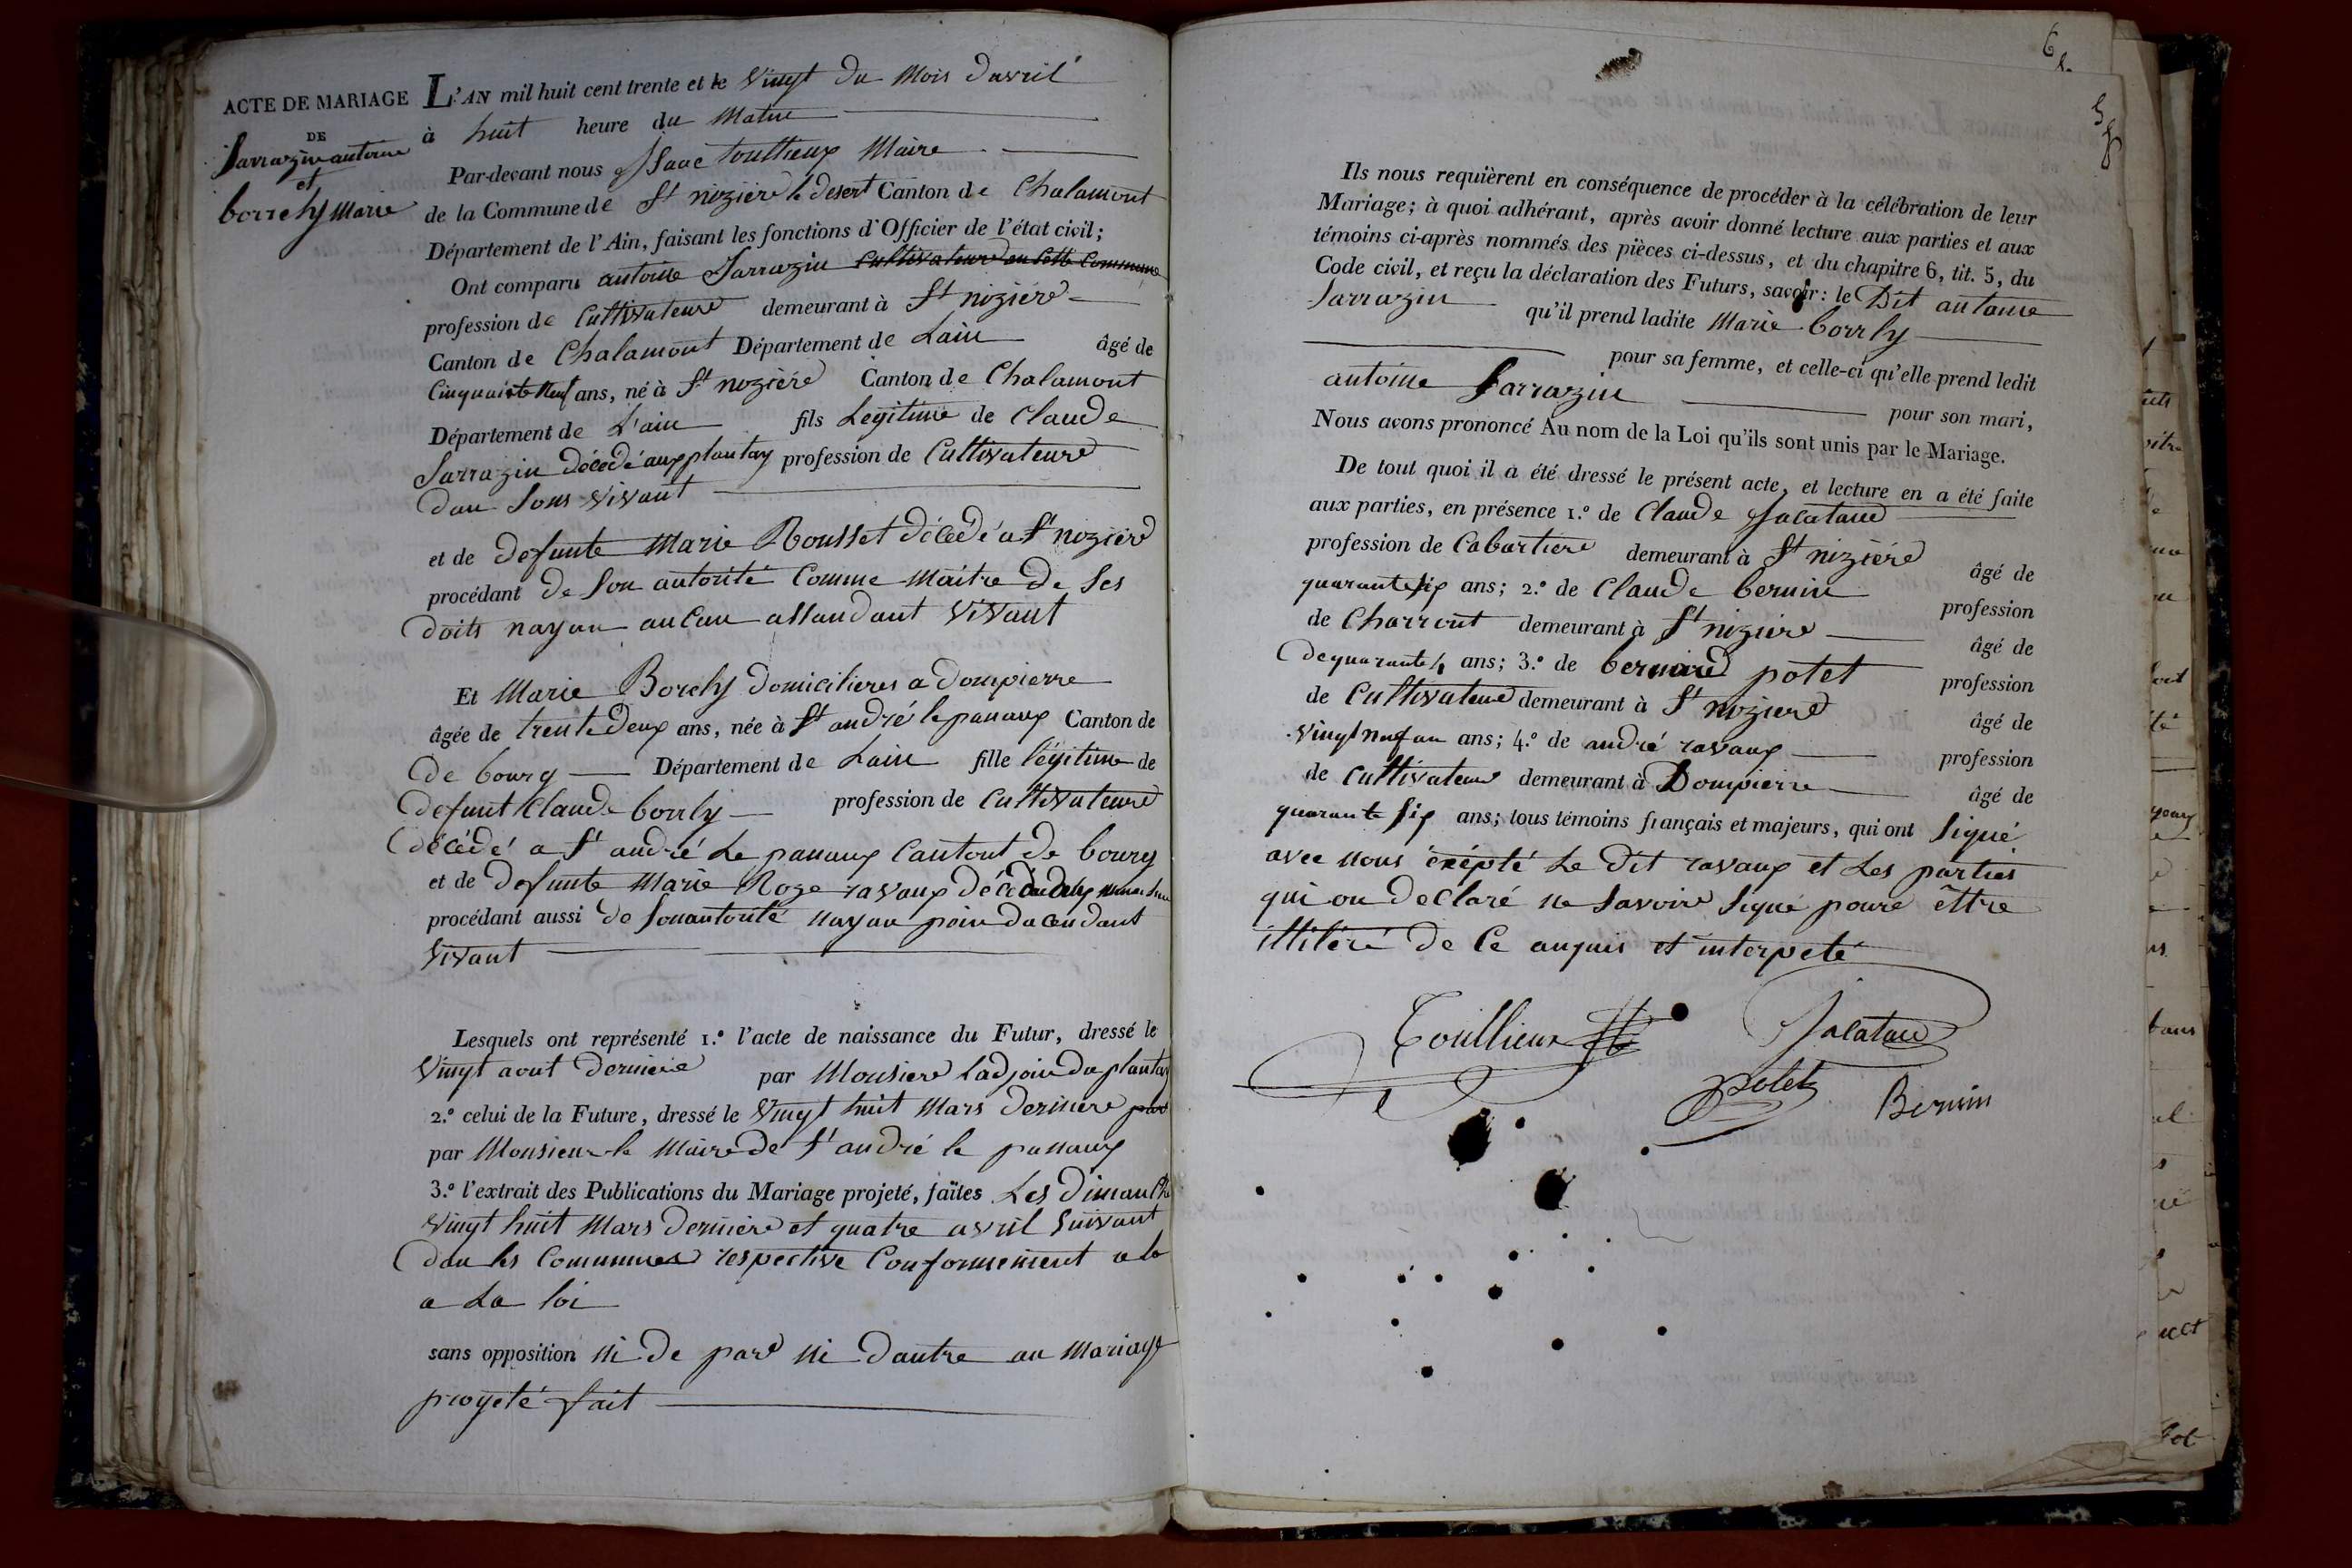 ACTE DE MARIAGE
DE
Sarrazin antoine
et
borrely Marie
L'AN mil huit cent trente et le Vingt du Mois davril
à huit heure du Matin
Par-devant nous Isaac touillieux Maire
de la Commune de St nizière le desert Canton de Chalamont
Département de l'Ain, faisant les fonctions d'Officier de l'état civil;
Ont comparu antoine Sarrazin Cultivateure en Cette Commune
profession de Cultivateure demeurant à St nizière
Canton de Chalamont Département de Lain âgé de
Cinquante Neuf ans, né à St nizière Canton de Chalamont
Département de L'ain fils Legitime de Claude
Sarrazin décédé aux plantay profession de Cultivateure
dan Sons vivant
et de defunte Marie Rousset décédé a St nizière
procédant de Son autorité Comme Maitre de Ses
doits nayan aucun assandant vivant
Et Marie Borely domicilieres a dompierre
âgée de trente deux ans, née à St andré le panaux Canton de
de bourg Département de Lain fille légitime de
defunt Claude borrly profession de Cultivateure
décédé a St andré Le panaux Cantont de bourg
et de defunte Marie Roze ravaux décédé
procédant aussi de Sonautorité nayan poin dacendant
vivant
Lesquels ont représenté 1.º l'acte de naissance du Futur, dressé le
Vingt aout derniere par Monsiere Ladjoin du plantay
2.º celui de la Future, dressé le Vingt huit Mars derniere par
par Monsieur le Maire de St andré le panaux
3.º l'extrait des Publications du Mariage projeté, faites Les dimanche
vingt huit Mars derniere et quatre avril Suivant
dan les Communes respective Conformement a la
a La loi
sans opposition ni de pare ni dautre au Mariage
proyeté fait
Ils nous requièrent en conséquence de procéder à la célébration de leur
Mariage; à quoi adhérant, après avoir donné lecture aux parties et aux
témoins ci-après nommés des pièces ci-dessus, et du chapitre 6, tit. 5, du
Code civil, et reçu la déclaration des Futurs, savoir: le Dit antoine
Sarrazin qu'il prend ladite Marie borrly
pour sa femme, et celle-ci qu'elle prend ledit
antoine Sarrazin pour son mari,
Nous avons prononcé Au nom de la Loi qu'ils sont unis par le Mariage.
De tout quoi il a été dressé le présent acte, et lecture en a été faite
aux parties, en présence 1.º de Claude Jalataud
profession de Cabartiere demeurant à St nizière âgé de
quarante six ans; 2.º de Claude bernin profession
de Charront demeurant à St niziere âgé de
de quarante 4 ans; 3.º de bernard potet profession
de Cultivateure demeurant à St niziere âgé de
vingt neuf an ans; 4.º de andré ravaux profession
de Cultivateur demeurant à Dompierre âgé de
quarante six ans; tous témoins français et majeurs, qui ont Signé
avec nous éxépté Le dit ravaux et Les parties
qui on declaré ne Savoire Signe poure êttre
illitéré de Ce anquis et interpeté
Touillieux Jalataud
potet Bernin